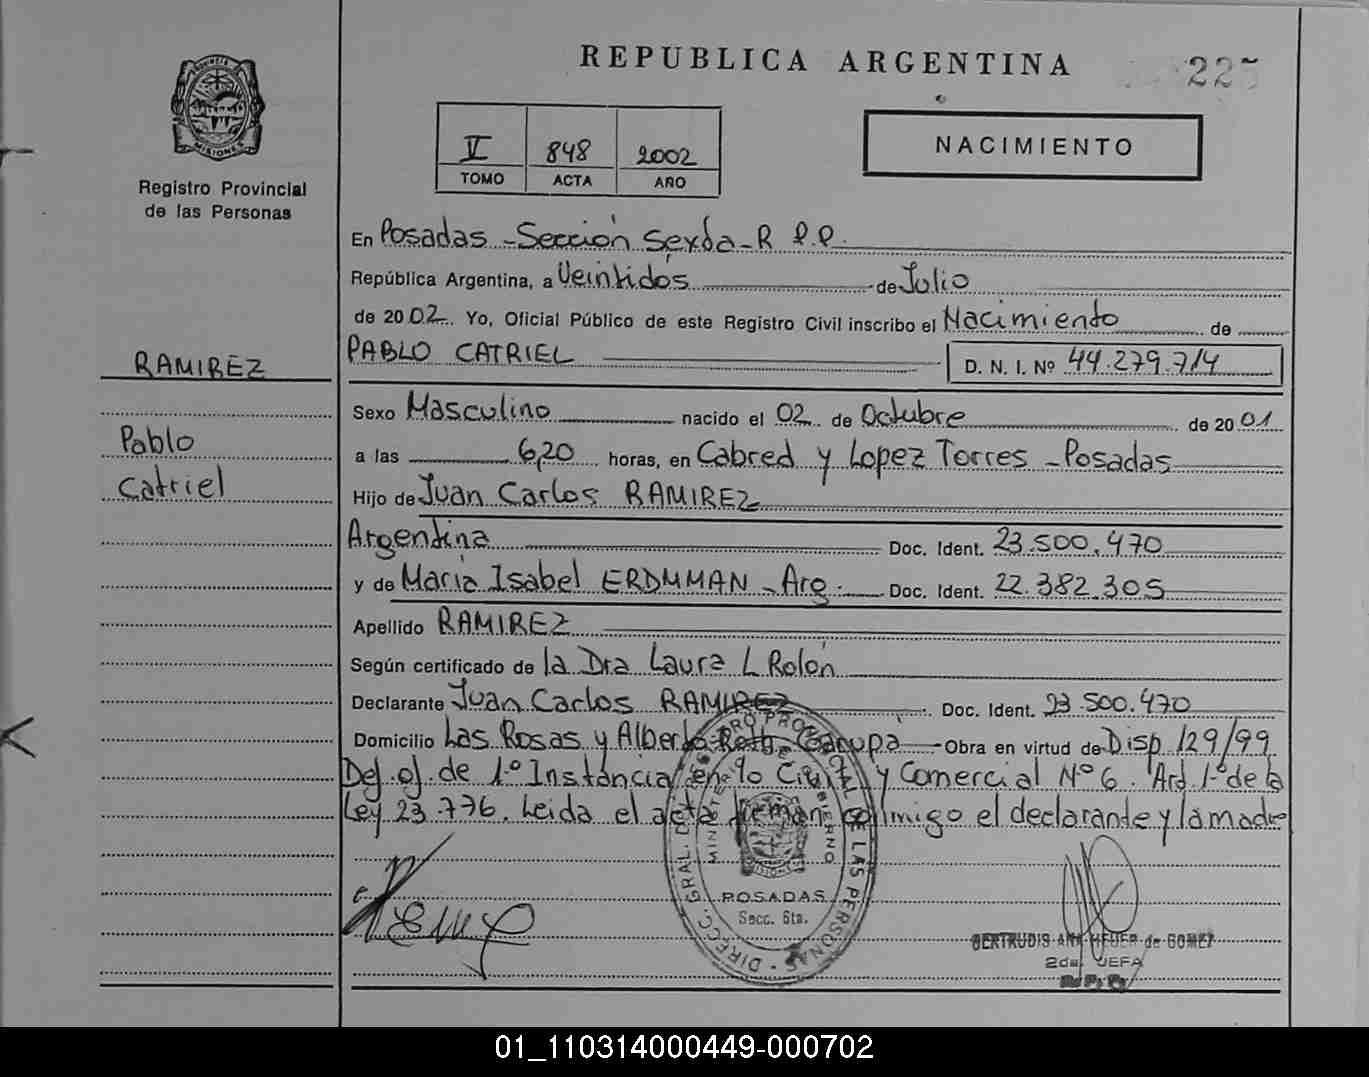 REPUBLICA ARGENTINA
225
PROVINCIA DE
MISIONES
Registro Provincial
de las Personas
V 848 2002
TOMO ACTA AÑO
NACIMIENTO
En Posadas - Sección Sexta - R P.P.
República Argentina, a Veintidós de Julio
de 2002 Yo, Oficial Público de este Registro Civil inscribo el Nacimiento de
PABLO CATRIEL D. N. I. Nº 44.279.714
RAMIREZ
Pablo
Catriel
Sexo Masculino nacido el 02 de Octubre de 2001
a las 6,20 horas, en Cabred y Lopez Torres - Posadas
Hijo de Juan Carlos RAMIREZ
Argentina Doc. Ident. 23.500.470
y de María Isabel ERDMMAN - Arg. Doc. Ident. 22.382.305
Apellido RAMIREZ
Según certificado de la Dra Laura L Rolón
Declarante Juan Carlos RAMIREZ Doc. Ident. 23.500.470
Domicilio Las Rosas y Alberto Roth Garupá - Obra en virtud de Disp 129/99
de 1º Instancia en lo Civil y Comercial Nº 6. Art 1º de la
Ley 23.776. Leida el acta firman conmigo el declarante y la madre
DIRECC. GRAL. DEL REGISTRO PROVINCIAL DE LAS PERSONAS
MINISTERIO DE GOBIERNO
POSADAS
Secc. 6ta.
GERTRUDIS ANA HEUER de GOMEZ
2da. JEFA
01_110314000449-000702